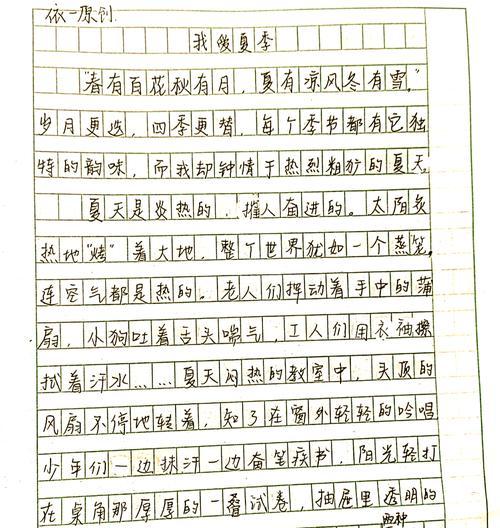 依一原创
我的夏季
“春有百花秋有月，夏有凉风冬有雪。”
岁月更迭，四季更替，每个季节都有它独
特的韵味，而我却钟情于热烈粗犷的夏天。
夏天是炎热的，催人奋进的。太阳炙
热地“烤”着大地，整个世界犹如一个蒸笼。
连空气都是热的。老人们挥动着手中的蒲
扇，小狗吐着舌头喘气，工人们用衣袖擦
拭着汗水……夏天闷热的教室中，头顶的
风扇不停地转着，知了在窗外轻轻的吟唱
少年们一边抹汗一边奋笔疾书，阳光轻打
在桌角那厚厚的一叠试卷，抽屉里透明的
两种